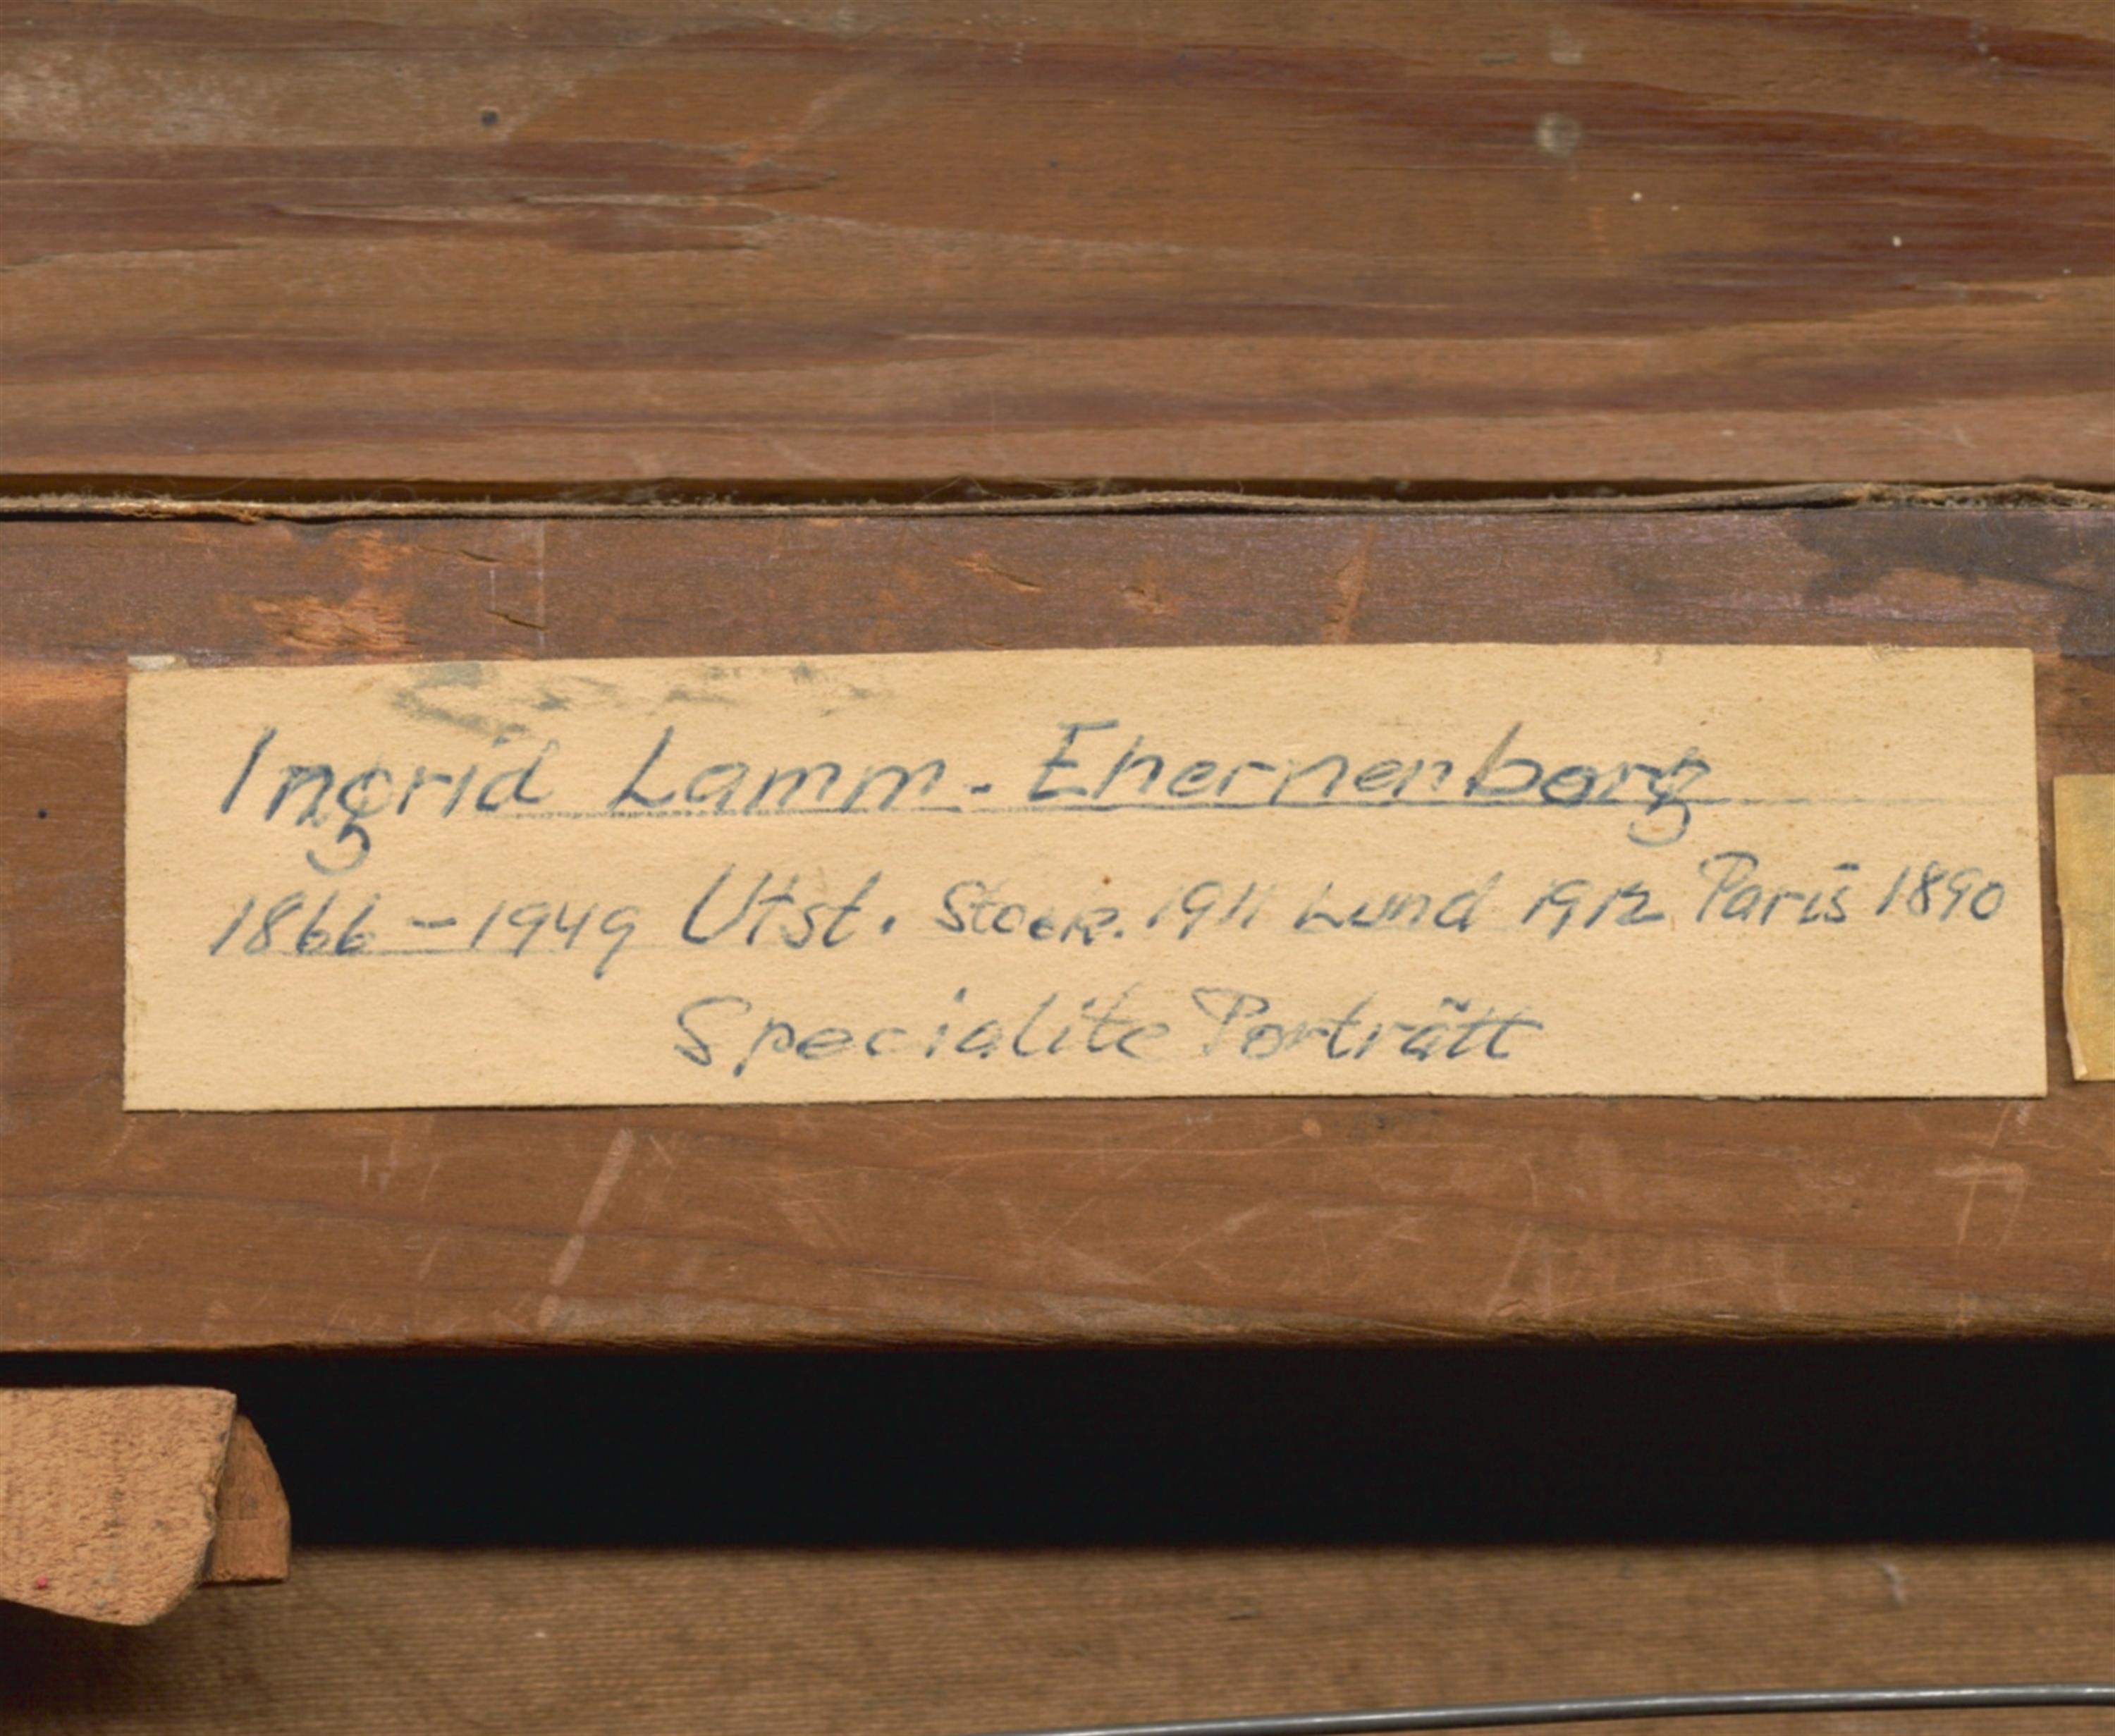 Ingrid Lamm - Ehernenborg
1866-1949 Utst. Stock. 1911 Lund 1912 Paris 1890
Specialite Porträtt